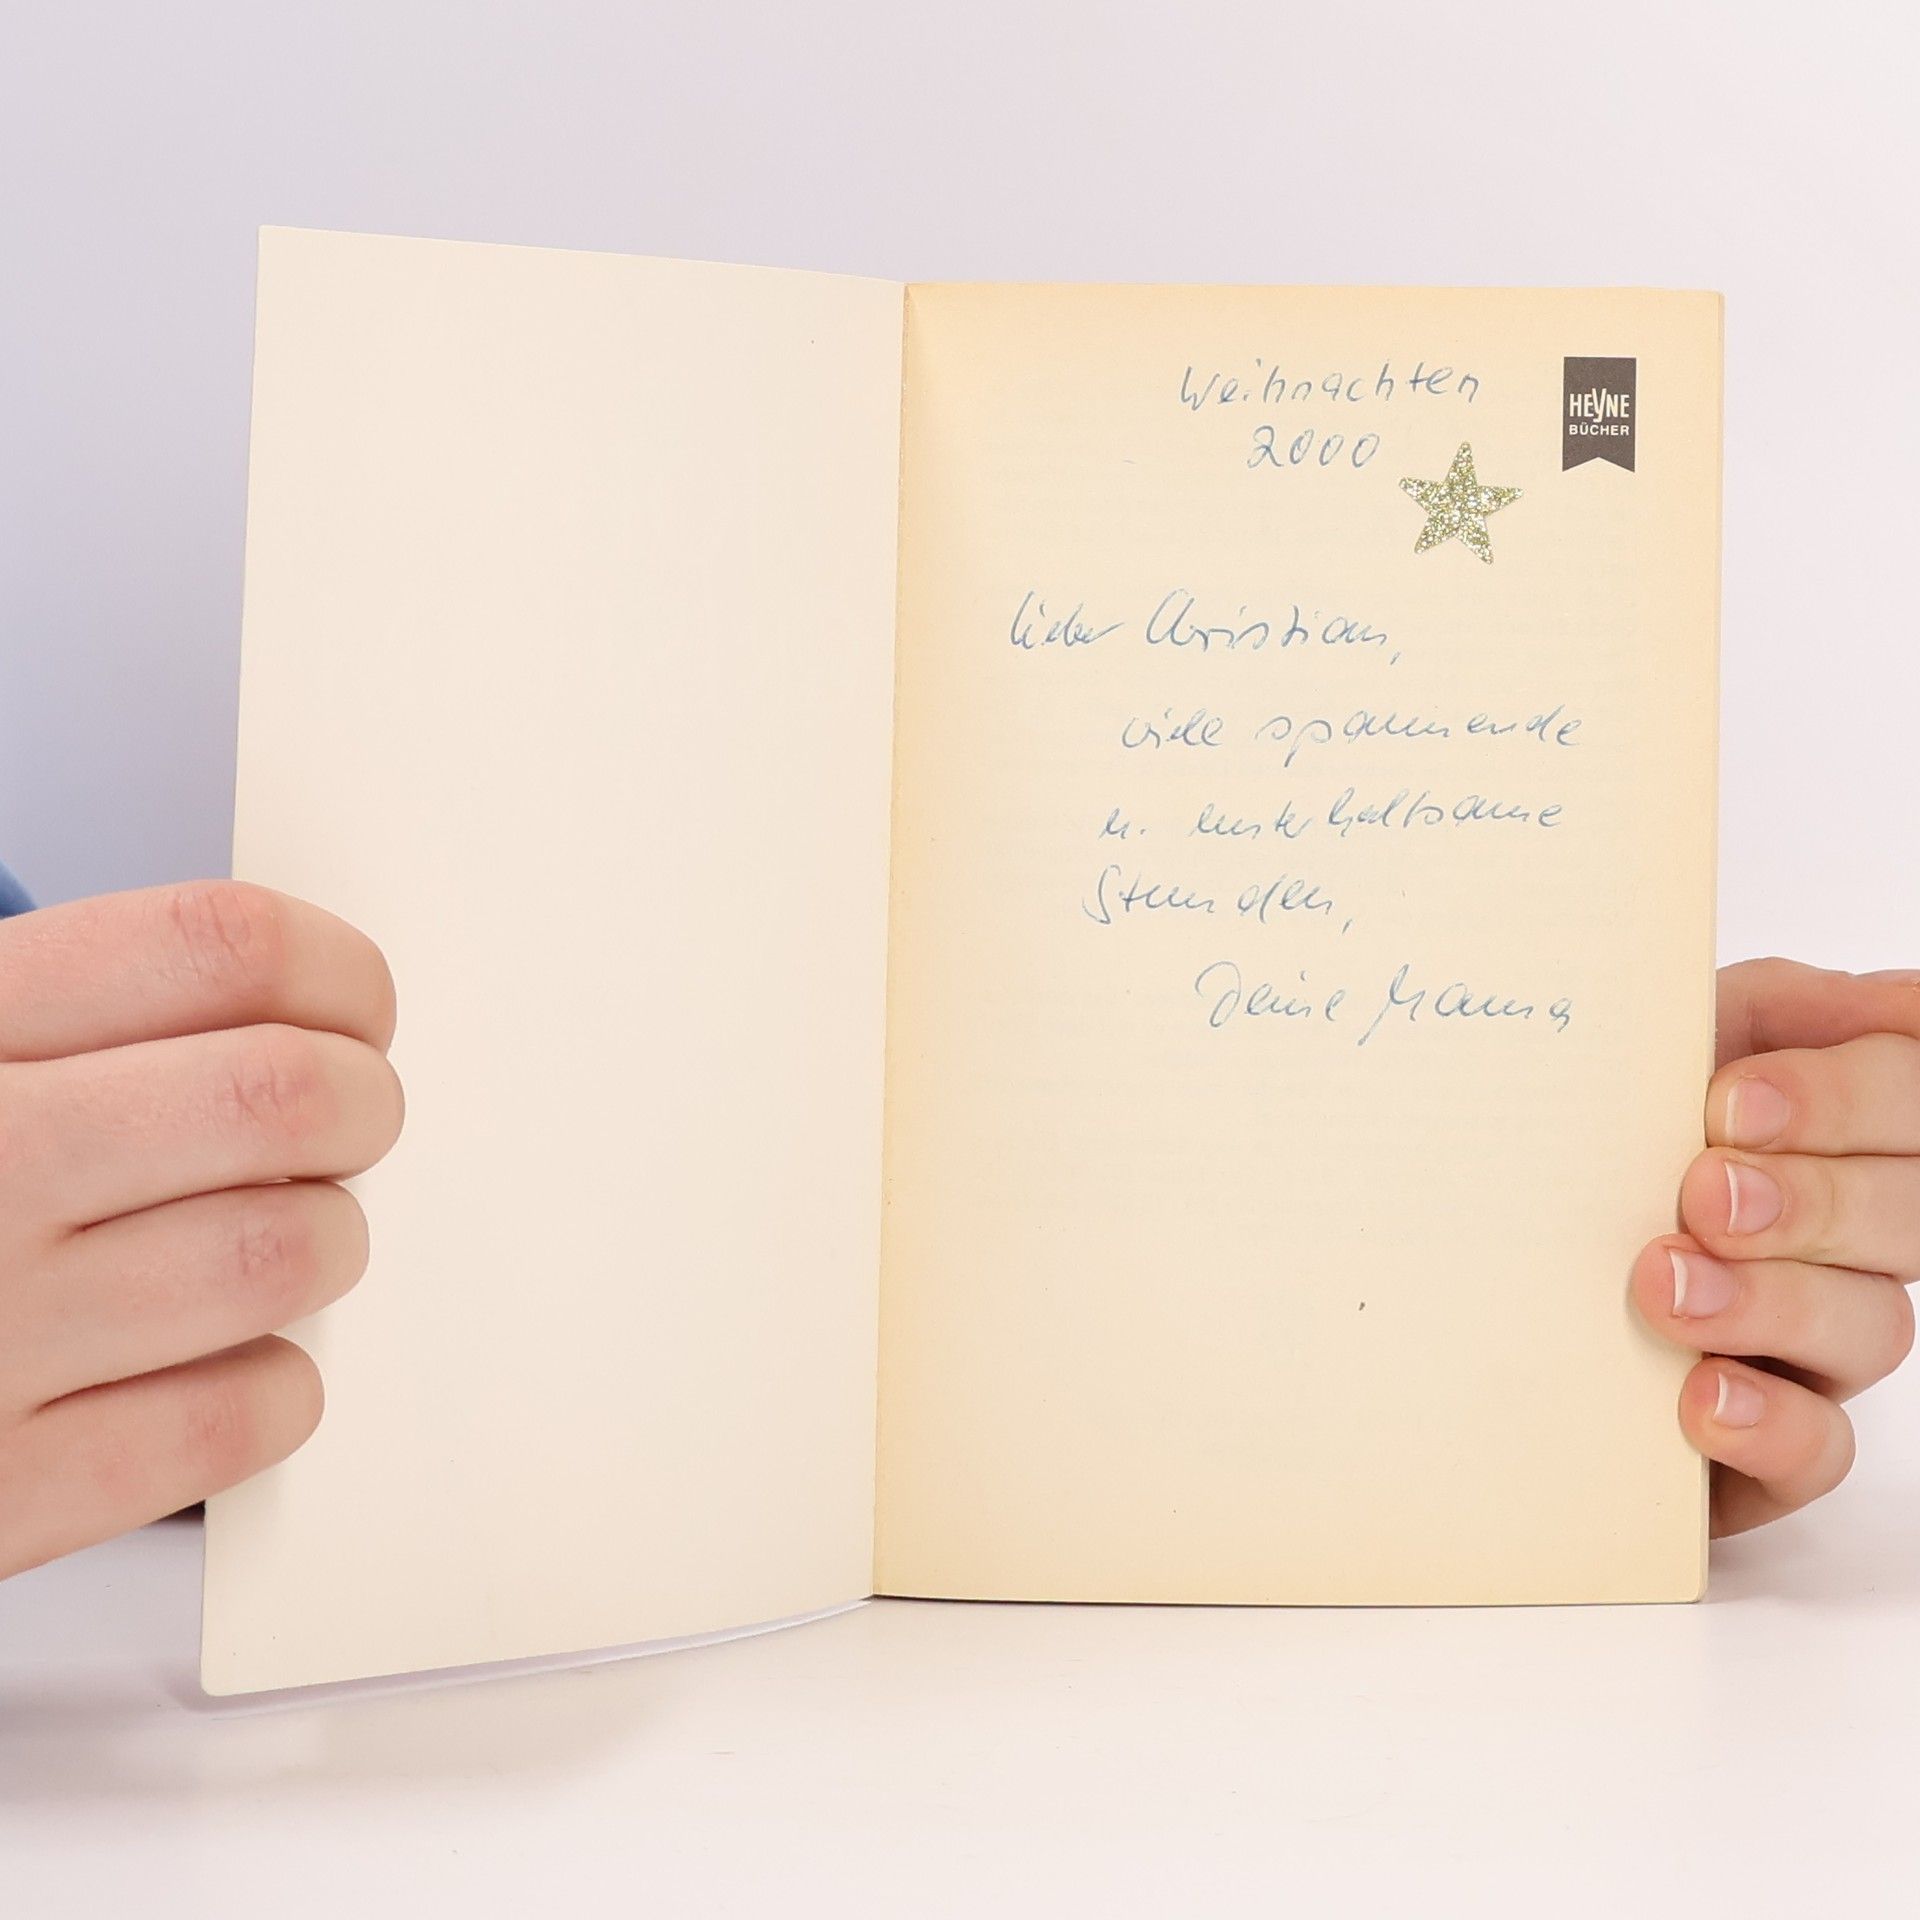 Weihnachten
2000
HEYNE
BÜCHER
Lieber Christian,
viele spannende
u. unterhaltsame
Stunden,
Deine Mama